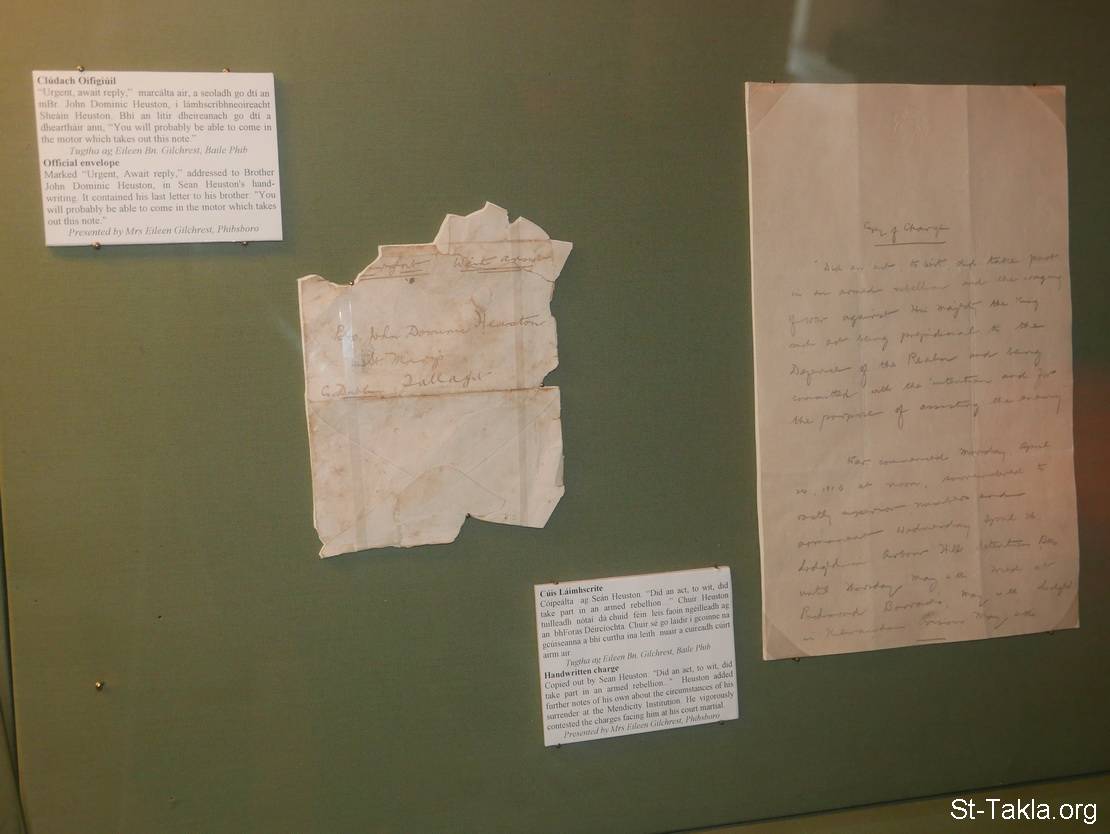 Clúdach Oifigiúil
“Urgent, await reply,” marcálta air, a seoladh go dtí an
mBr. John Dominic Heuston, i lámhscríbhneoireacht
Sheáin Heuston. Bhí an litir dheireanach go dtí a
dheartháir ann, “You will probably be able to come in
the motor which takes out this note.”
Tugtha ag Eileen Bn. Gilchrest, Baile Phib
Official envelope
Marked “Urgent, Await reply,” addressed to Brother
John Dominic Heuston, in Sean Heuston's hand-
writing. It contained his last letter to his brother: "You
will probably be able to come in the motor which takes
out this note.”
Presented by Mrs Eileen Gilchrest, Phibsboro
John Dominic Heuston
St. Mary's
Co. Dublin Tallaght
Cúis Láimhscríte
Cóipeálta ag Seán Heuston. “Did an act, to wit, did
take part in an armed rebellion...” Chuir Heuston
tuilleadh nótaí dá chuid féin leis faoin ngéilleadh ag
an bhForas Déirciochta. Chuir sé go láidir i gcoinne na
gcúiseanna a bhí curtha ina leith nuair a cuireadh cúirt
airm air.
Tugtha ag Eileen Bn. Gilchrest, Baile Phib
Handwritten charge
Copied out by Sean Heuston: "Did an act, to wit, did
take part in an armed rebellion..." Heuston added
further notes of his own about the circumstances of his
surrender at the Mendicity Institution. He vigorously
contested the charges facing him at his court martial.
Presented by Mrs Eileen Gilchrest, Phibsboro
Copy of Charge
"Did an act to wit did take part
in an armed rebellion and the waging
of war against His Majesty the King
such act being prejudicial to the
Defence of the Realm and being
committed with the intention and for
the purpose of assisting the enemy
War commenced Monday April
24, 1916 at noon, surrendered to
vastly superior numbers and
armament Wednesday April 26
Lodged in Arbour Hill Detention
until Thursday May 4th tried at
Richmond Barracks, May 4th lodged
in Kilmainham Prison May 4th
St-Takla.org